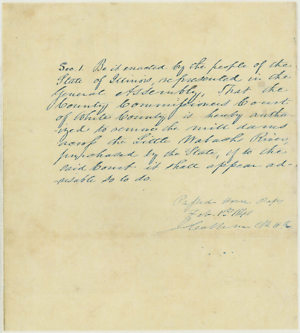 Sec. 1. Be it enacted by the people of the
State of Illinois, represented in the
General Assembly, That the
County Commissioners Court
of White County is hereby autho-
rized to remove the mill dams
across the Little Wabash River,
purchased by the State, if to the
said Court it shall appear ad-
visable so to do.
Passed House Reps
Feb.